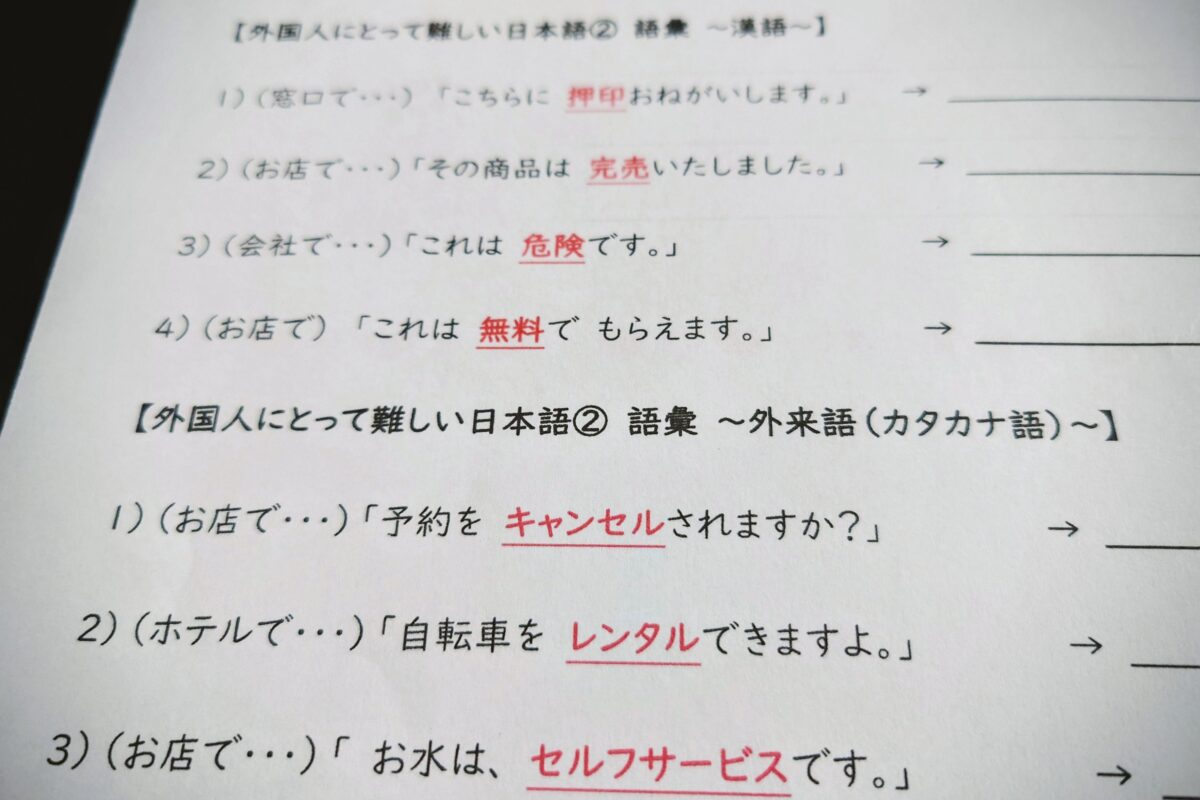 【外国人にとって難しい日本語② 語彙 ～漢語～】
1)（窓口で･･･）「こちらに 押印おねがいします。」 →
2)（お店で･･･）「その商品は 完売いたしました。」 →
3)（会社で･･･）「これは 危険です。」 →
4)（お店で）「これは 無料で もらえます。」 →
【外国人にとって難しい日本語② 語彙 ～外来語（カタカナ語）～】
1)（お店で･･･）「予約を キャンセルされますか？」 →
2)（ホテルで･･･）「自転車を レンタルできますよ。」 →
3)（お店で･･･）「 お水は、セルフサービスです。」 →